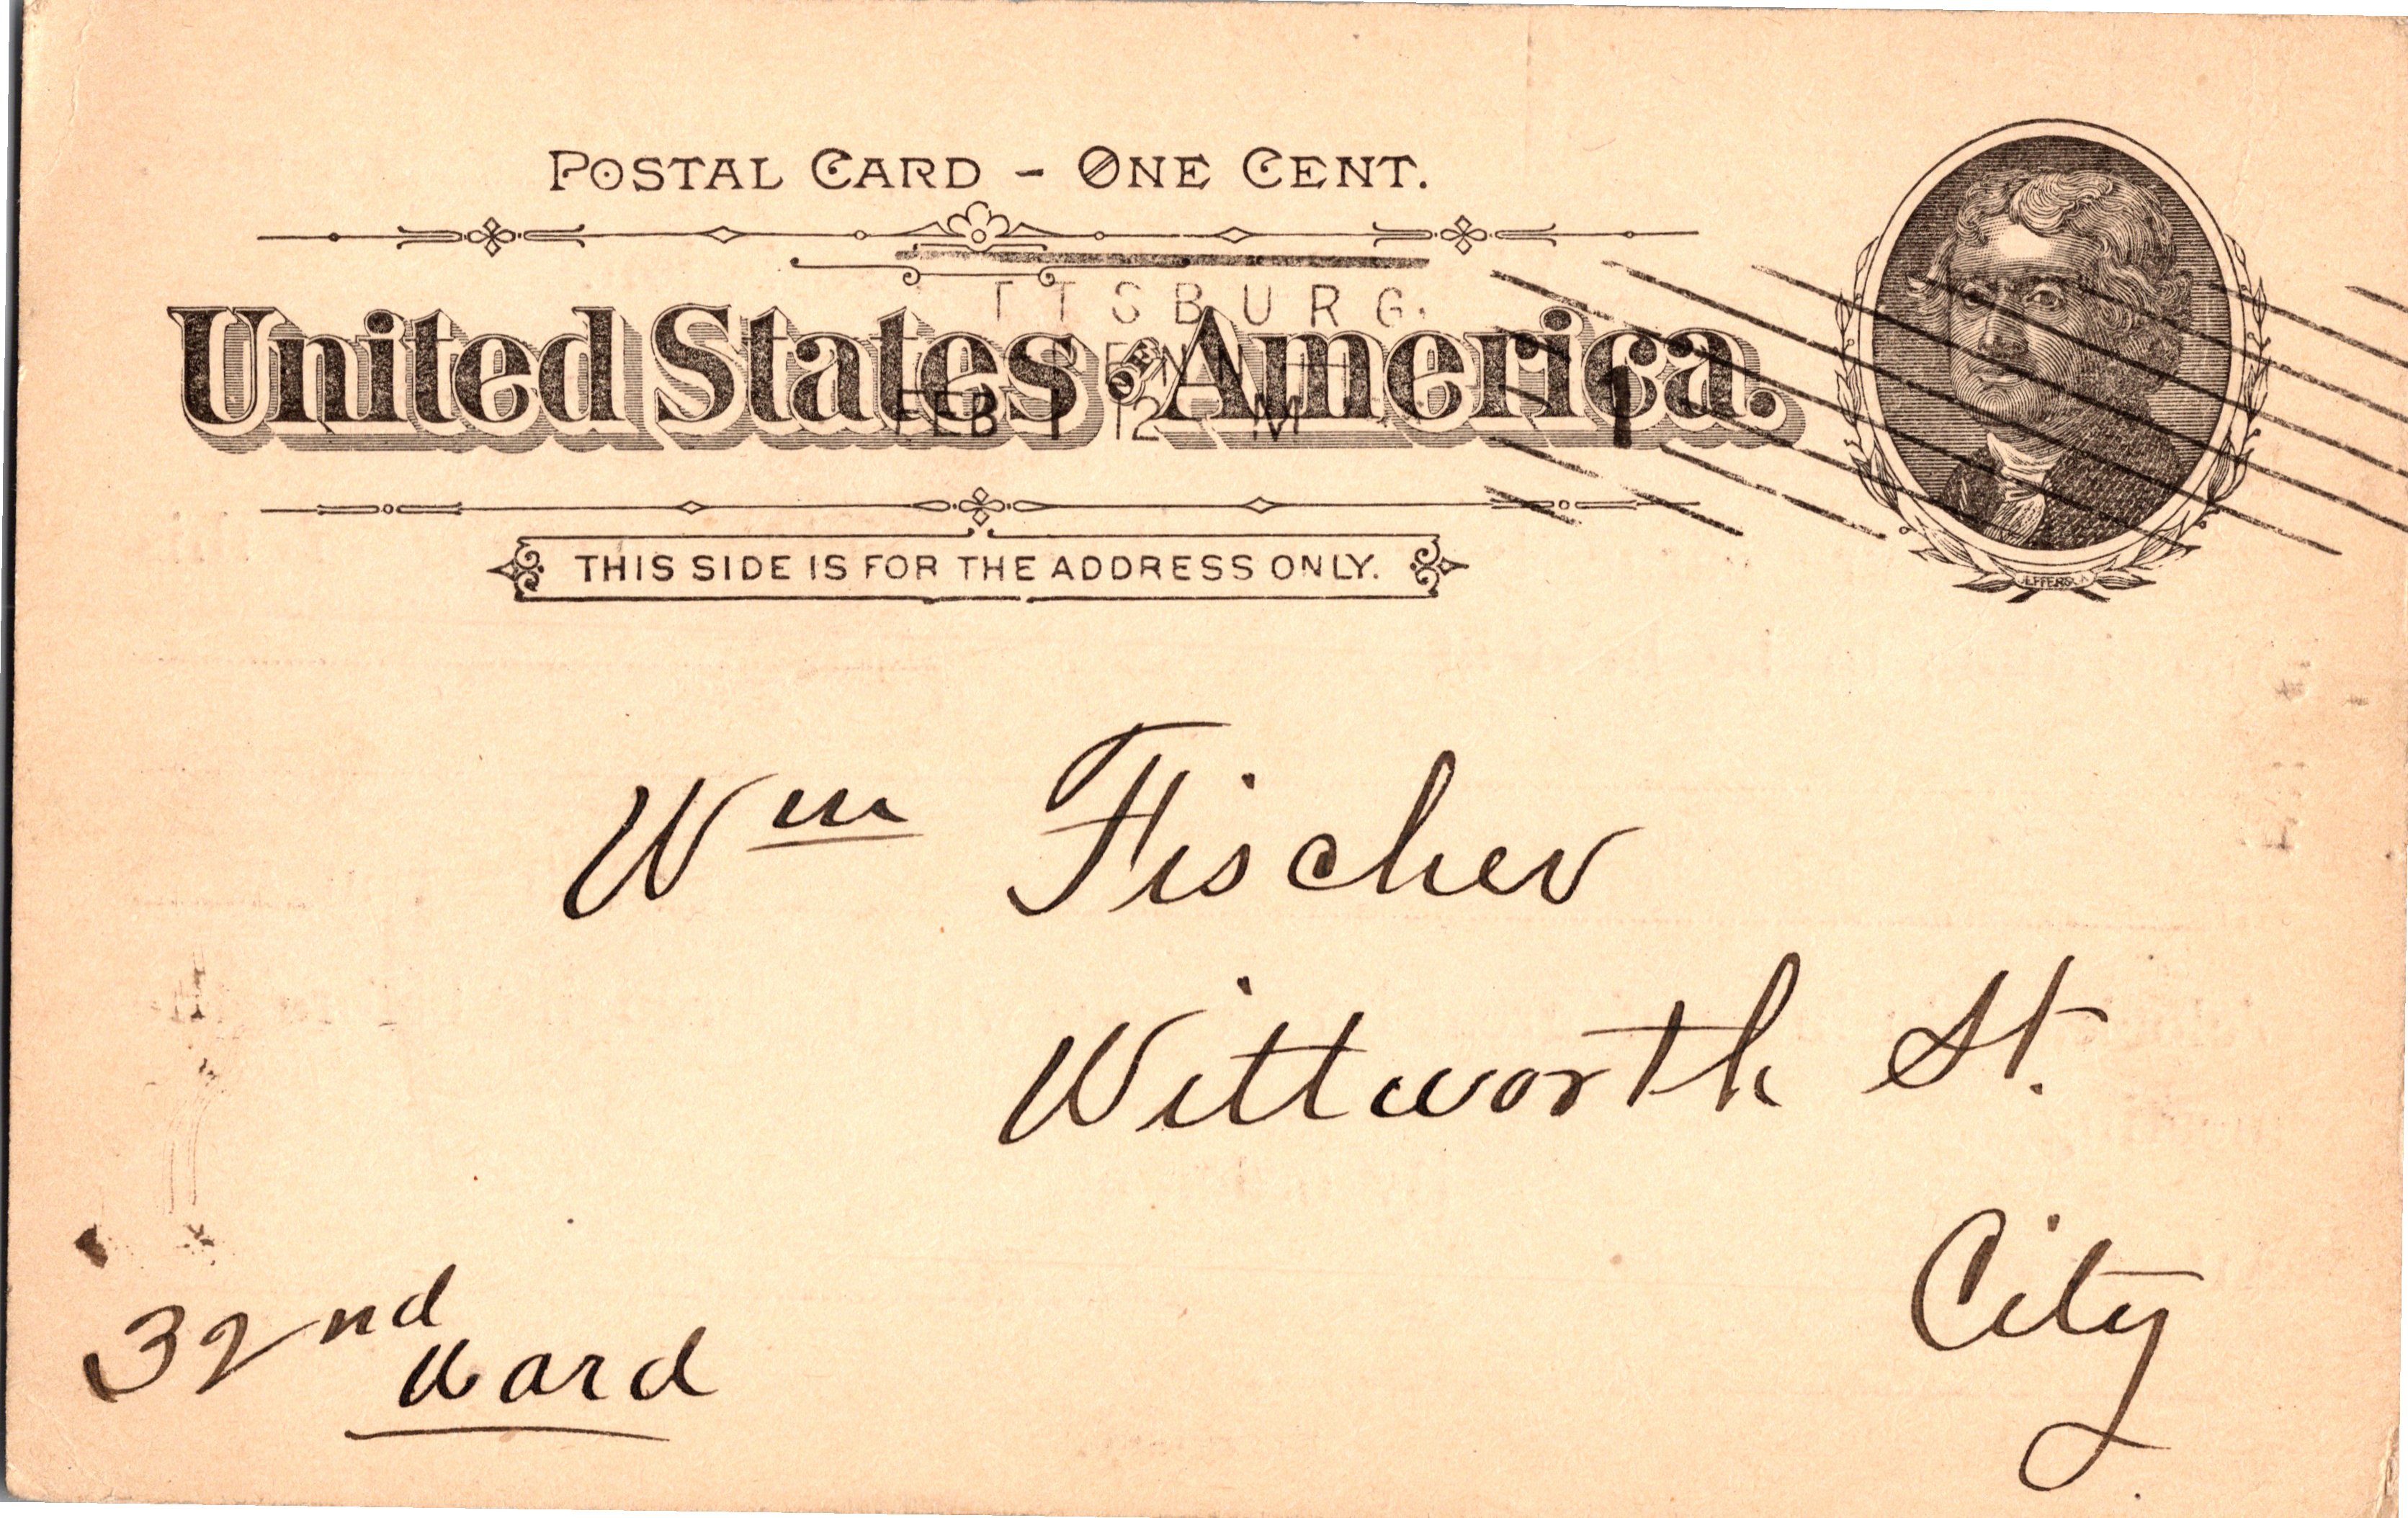 POSTAL CARD - ONE CENT.
TTSBURG.
United States OF America.
FEB 1 12 M
1
THIS SIDE IS FOR THE ADDRESS ONLY.
JEFFERSON
Wm Fischer
Wittworth St.
City
32nd
Ward